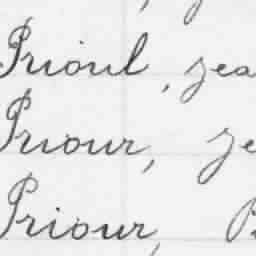 Prioul, jea
Priour, je
Priour, P